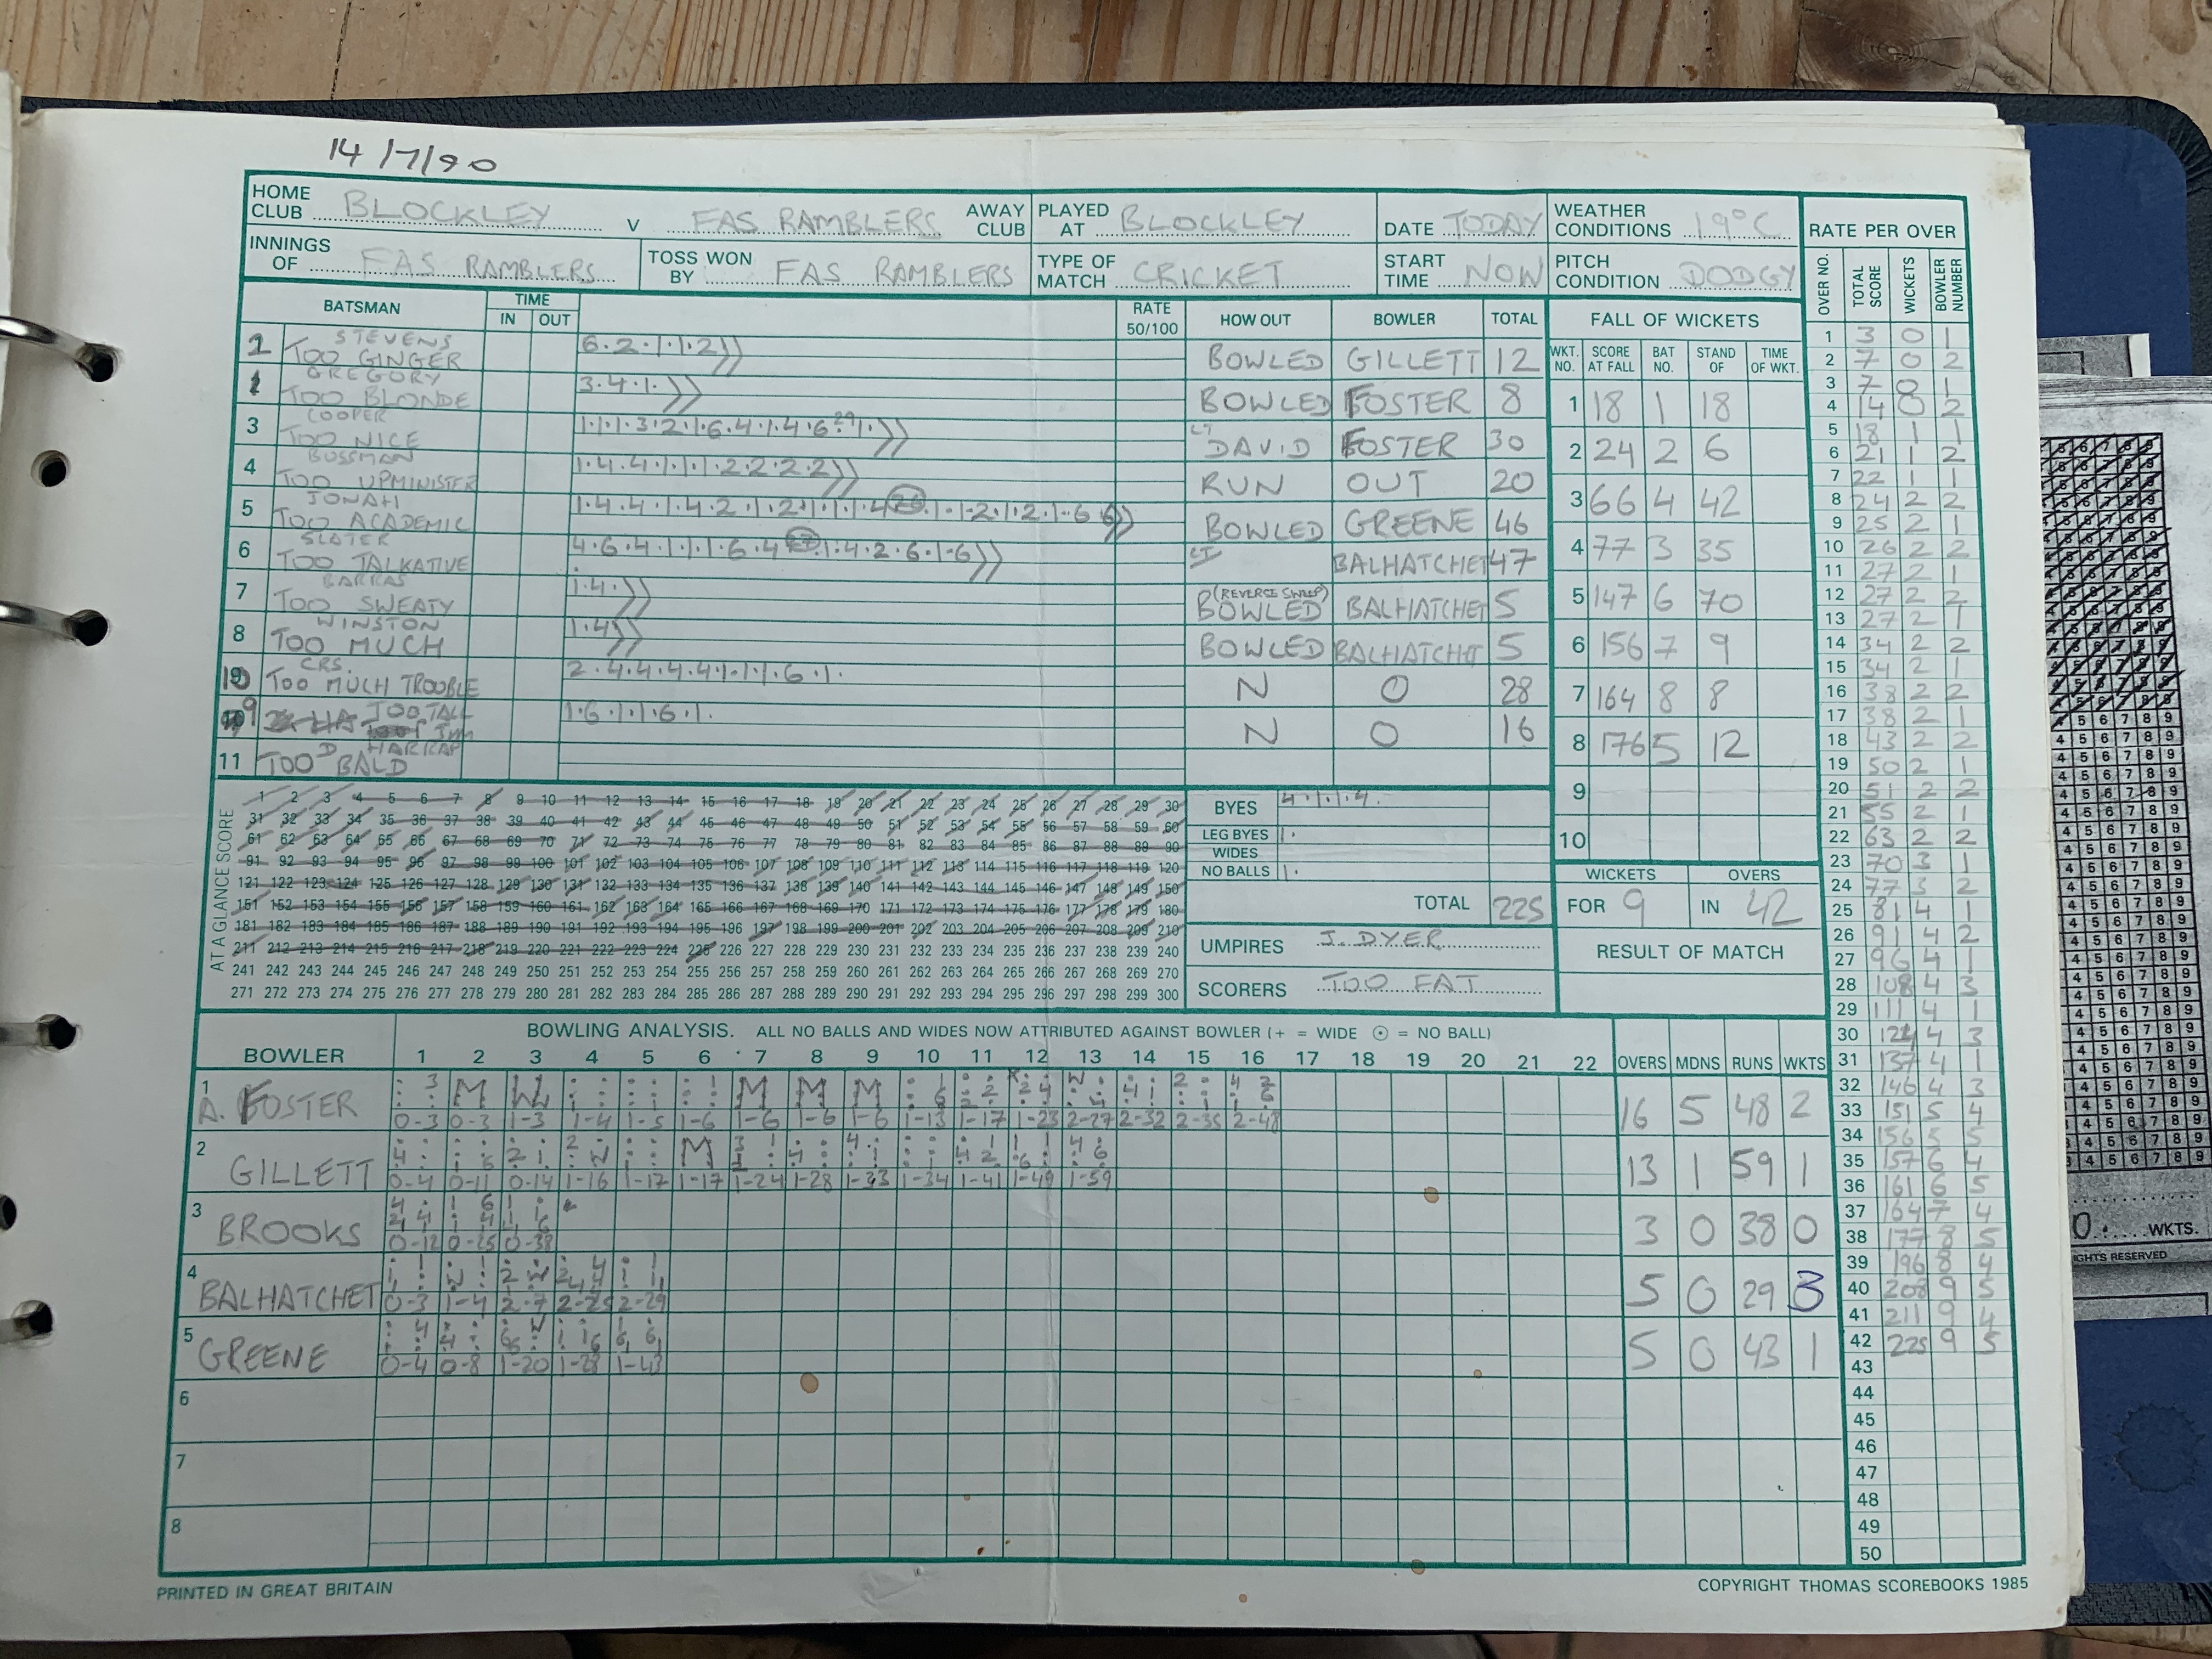 14/7/90
HOME CLUB BLOCKLEY V FAS RAMBLERS AWAY CLUB PLAYED AT BLOCKLEY DATE TODAY WEATHER CONDITIONS 19°C
INNINGS OF FAS RAMBLERS TOSS WON BY FAS RAMBLERS TYPE OF MATCH CRICKET START TIME NOW PITCH CONDITION DODGY
BATSMAN TIME IN OUT RATE 50/100 HOW OUT BOWLER TOTAL
STEVENS
TOO GINGER 6.2.1.1.2 BOWLED GILLETT 12
GREGORY
1 TOO BLONDE 3.4.1. BOWLED FOSTER 8
COOPER
3 TOO NICE 1.1.1.3.2.1.6.4.1.4.6.29 1. CT DAVID FOSTER 30
BUSSMAN
4 TOO UPMINISTER 1.4.4.1.1.1.2.2.2.2 RUN OUT 20
JONAH
5 TOO ACADEMIC BOWLED GREENE 46
SLATER
6 TOO TALKATIVE CT BALHATCHET 47
BARRAS
7 TOO SWEATY 1.4. BOWLED (REVERSE SWEEP) BALHATCHET 5
WINSTON
8 TOO MUCH 1.4 BOWLED BALHATCHET 5
CRS.
10 TOO MUCH TROUBLE 2.4.4.4.4.1.1.1.6.1. N O 28
9 TOO TALL 1.6.1.1.6.1. N O 16
D HARRAP
11 TOO BALD
FALL OF WICKETS
WKT. NO. SCORE AT FALL BAT NO. STAND OF TIME OF WKT.
1 18 1 18
2 24 2 6
3 66 4 42
4 77 3 35
5 147 6 70
6 156 7 9
7 164 8 8
8 176 5 12
9
10
WICKETS OVERS
FOR 9 IN 42
RESULT OF MATCH
AT A GLANCE SCORE
1 2 3 4 5 6 7 8 9 10 11 12 13 14 15 16 17 18 19 20 21 22 23 24 25 26 27 28 29 30
31 32 33 34 35 36 37 38 39 40 41 42 43 44 45 46 47 48 49 50 51 52 53 54 55 56 57 58 59 60
61 62 63 64 65 66 67 68 69 70 71 72 73 74 75 76 77 78 79 80 81 82 83 84 85 86 87 88 89 90
91 92 93 94 95 96 97 98 99 100 101 102 103 104 105 106 107 108 109 110 111 112 113 114 115 116 117 118 119 120
121 122 123 124 125 126 127 128 129 130 131 132 133 134 135 136 137 138 139 140 141 142 143 144 145 146 147 148 149 150
151 152 153 154 155 156 157 158 159 160 161 162 163 164 165 166 167 168 169 170 171 172 173 174 175 176 177 178 179 180
181 182 183 184 185 186 187 188 189 190 191 192 193 194 195 196 197 198 199 200 201 202 203 204 205 206 207 208 209 210
211 212 213 214 215 216 217 218 219 220 221 222 223 224 225 226 227 228 229 230 231 232 233 234 235 236 237 238 239 240
241 242 243 244 245 246 247 248 249 250 251 252 253 254 255 256 257 258 259 260 261 262 263 264 265 266 267 268 269 270
271 272 273 274 275 276 277 278 279 280 281 282 283 284 285 286 287 288 289 290 291 292 293 294 295 296 297 298 299 300
BYES 4.1.1.4.
LEG BYES 1.
WIDES
NO BALLS 1.
TOTAL 225
UMPIRES J. DYER
SCORERS TOO FAT
BOWLING ANALYSIS. ALL NO BALLS AND WIDES NOW ATTRIBUTED AGAINST BOWLER (+ = WIDE ⊙ = NO BALL)
BOWLER 1 2 3 4 5 6 7 8 9 10 11 12 13 14 15 16 17 18 19 20 21 22 OVERS MDNS RUNS WKTS
1 A. FOSTER 16 5 48 2
0-3 0-3 1-3 1-4 1-5 1-6 1-6 1-6 1-6 1-13 1-17 1-23 2-27 2-32 2-35 2-48
2 GILLETT 13 1 59 1
0-4 0-11 0-14 1-16 1-17 1-17 1-24 1-28 1-33 1-34 1-41 1-49 1-59
3 BROOKS 3 0 38 0
0-12 0-25 0-38
4 BALHATCHET 5 0 29 3
0-3 1-4 2-7 2-25 2-29
5 GREENE 5 0 43 1
0-4 0-8 1-20 1-28 1-43
6
7
8
RATE PER OVER
OVER NO. TOTAL SCORE WICKETS BOWLER NUMBER
1 3 0 1
2 7 0 2
3 7 0 1
4 14 0 2
5 18 1 1
6 21 1 2
7 22 1 1
8 24 2 2
9 25 2 1
10 26 2 2
11 27 2 1
12 27 2 2
13 27 2 1
14 34 2 2
15 34 2 1
16 38 2 2
17 38 2 1
18 43 2 2
19 50 2 1
20 51 2 2
21 55 2 1
22 63 2 2
23 70 3 1
24 77 3 2
25 81 4 1
26 91 4 2
27 96 4 1
28 108 4 3
29 111 4 1
30 124 4 3
31 137 4 1
32 146 4 3
33 151 5 4
34 156 5 5
35 157 6 4
36 161 6 5
37 164 7 4
38 177 8 5
39 196 8 4
40 208 9 5
41 211 9 4
42 225 9 5
43
44
45
46
47
48
49
50
PRINTED IN GREAT BRITAIN
COPYRIGHT THOMAS SCOREBOOKS 1985
WKTS.
IGHTS RESERVED